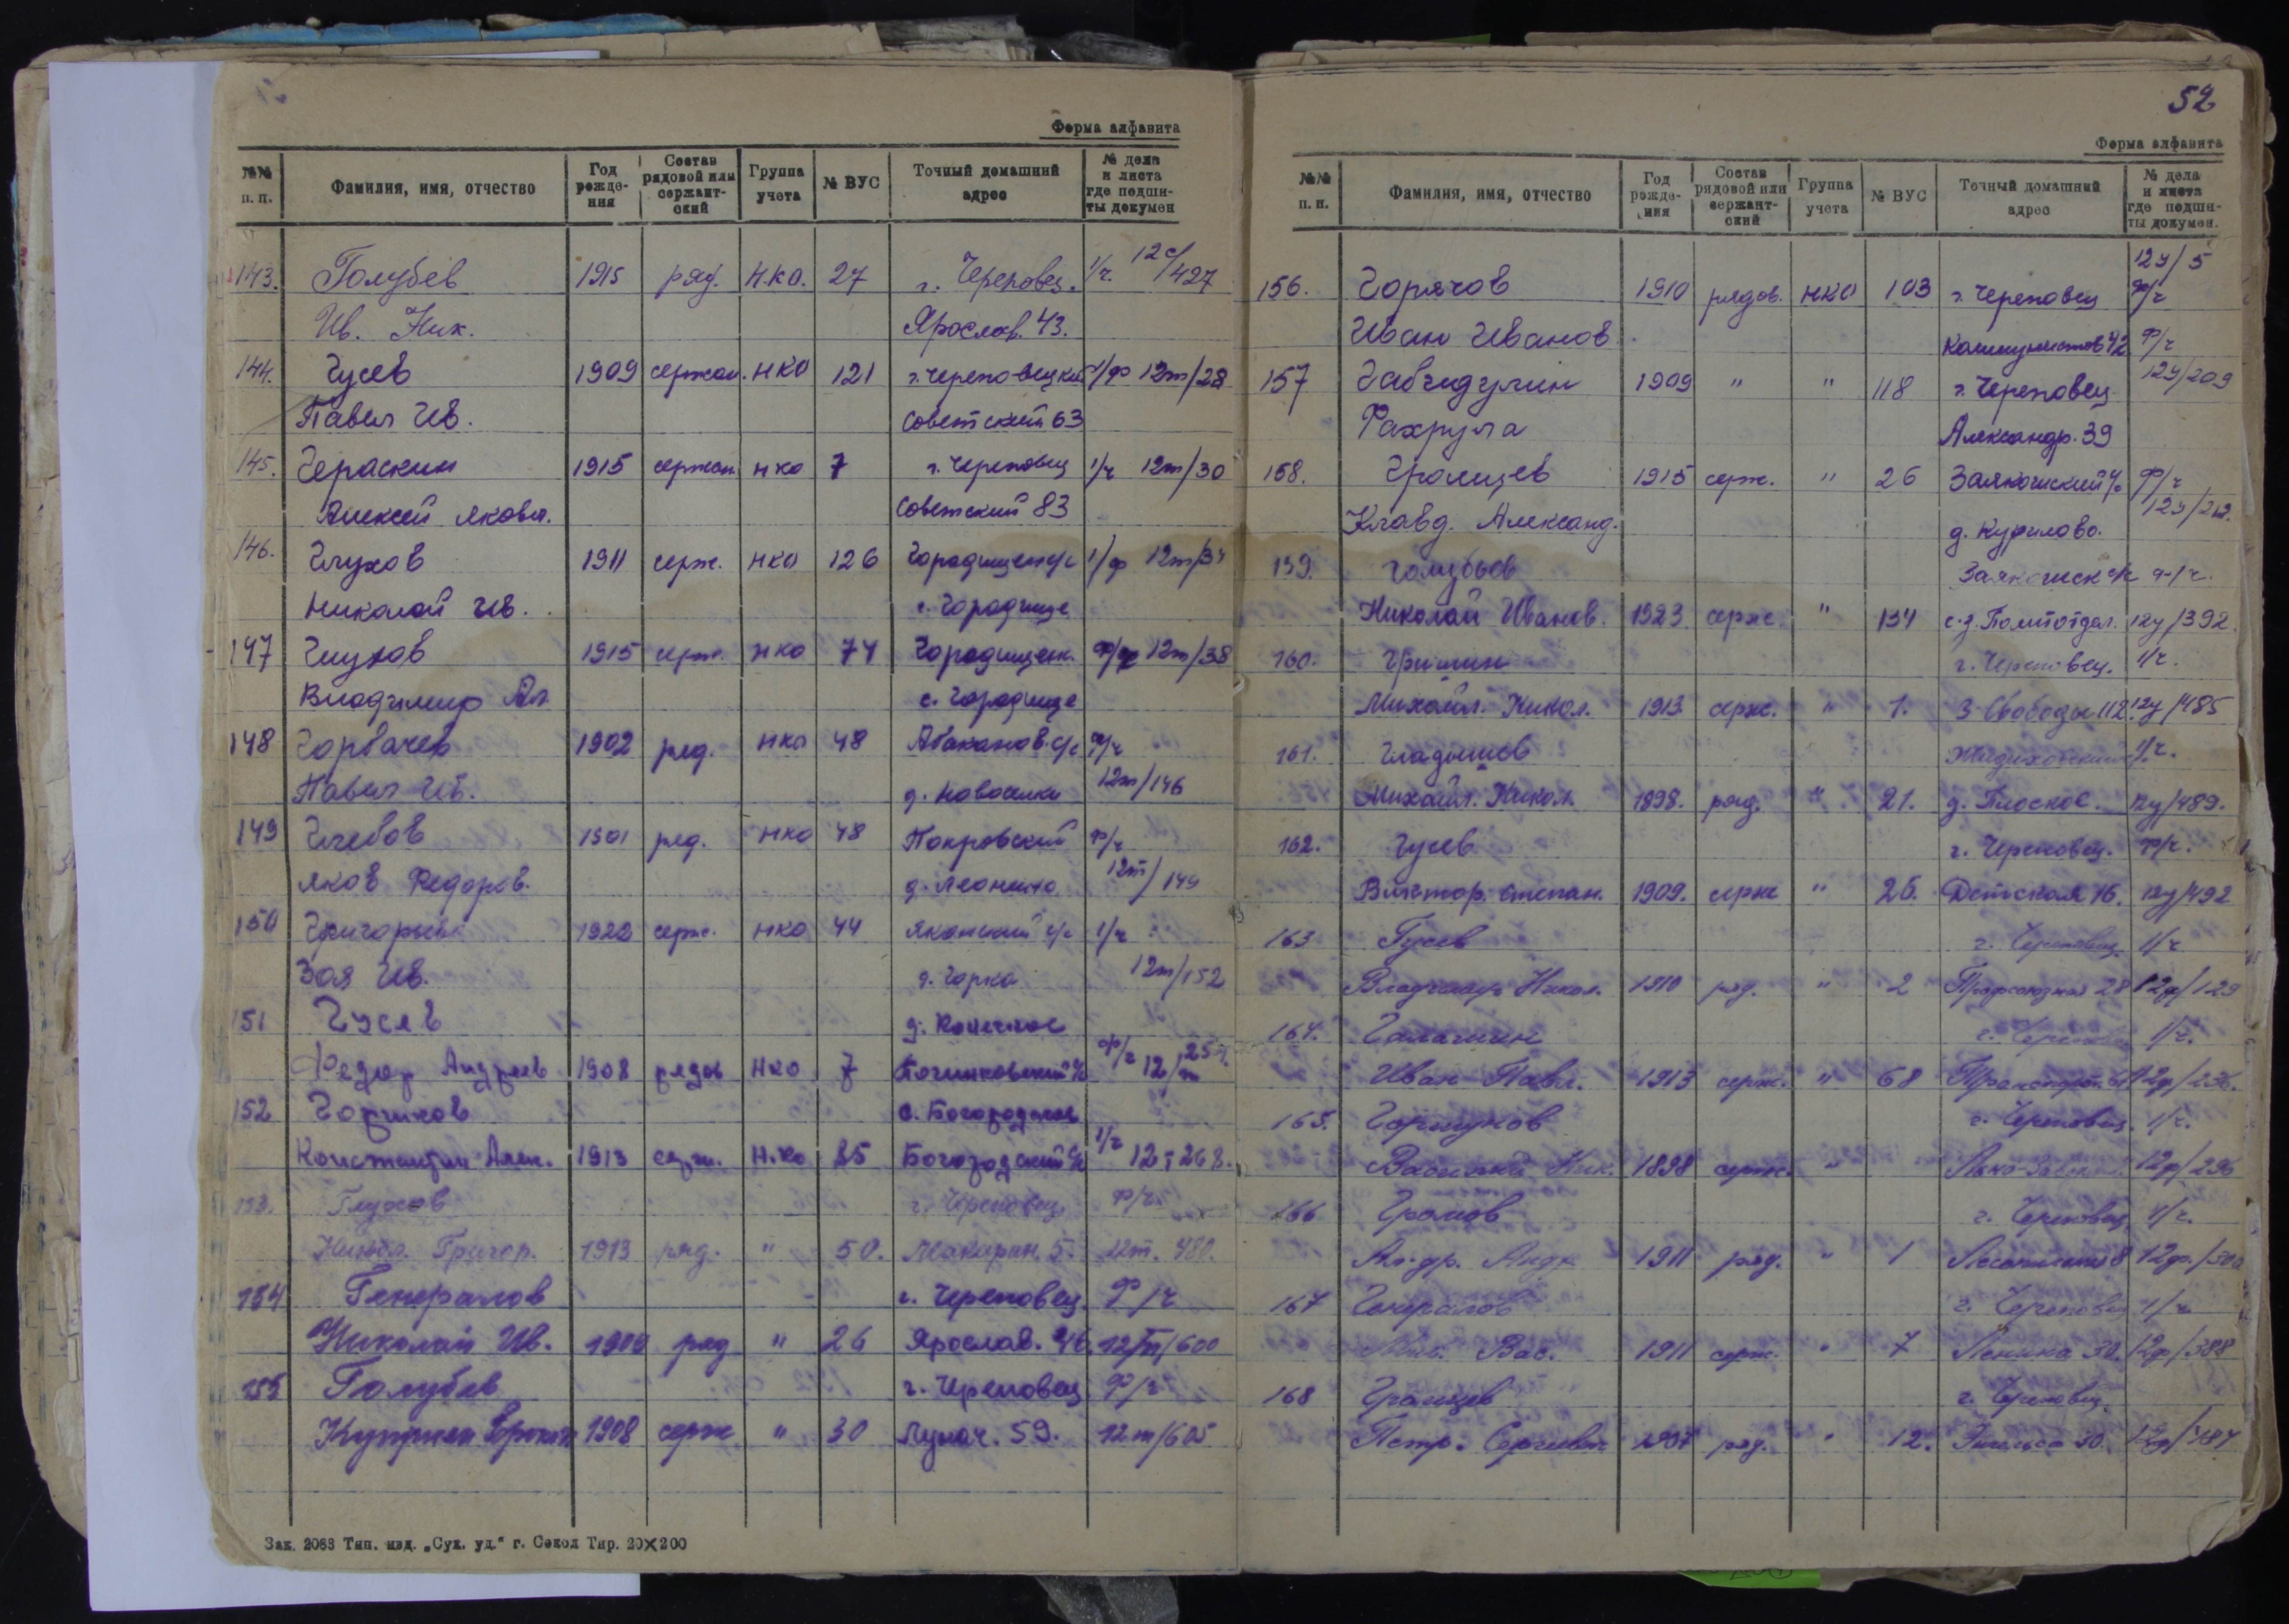 Форма алфавита
№№ п. п. Фамилия, имя, отчество Год рождения Состав рядовой или сержантский Группа учета № ВУС Точный домашний адрес № дела и листа где подшиты докумен
143. Голубев 1915 ряд. Н.К.О. 27 г. Череповец. 1/г. 12с/427
Ив. Ник. Ярослав. 43.
144. Гусев 1909 сержан. НКО 121 г. Череповецкий 1/ф 12т/28
Павел Ив. Советский 63
145. Гераскин 1915 сержан. НКО 7 г. Череповец 1/г 12т/30
Алексей Яковл. Советский 83
146. Глухов 1911 серж. НКО 126 Городищен с/с 1/ф 12т/34
Николай Ив. с. Городище
147 Глухов 1915 серж. НКО 74 Городищенк. 12т/38
Владимир Ал. с. Городище
148 Горбачев 1902 ряд. НКО 48 Абаканов. с/с ф/г
Павел Ив. д. Новоселки 12т/146
149 Глебов 1901 ряд. НКО 48 Покровский ф/г
Яков Федоров. д. Леонино 12т/149
150 Григорьев 1922 серж. НКО 44 с/с 1/г
Зоя Ив. д. Горка 12т/152
151 Гусев д. Конечное
Федор Андреев 1908 рядов НКО 7 Починковский с/с ф/г 12/т
152 Горшков с. Богородское
Константин Алек. 1913 серж. Н.Ко 85 Богородский с/с 1/г 12т 268.
153. Глухов г. Череповец ф/г.
Никол. Григор. 1913 ряд. " 50. Макарин. 5. 12т. 480.
154 Генералов г. Череповец. ф/г
Николай Ив. 1909 ряд " 26 Ярослав. 46. 12т/600
155 Голубев г. Череповец ф/г
1908 серж " 30 Лунач. 59. 12т/605
Зак. 2088 Тип. изд. „Сух. уд.“ г. Сокол Тир. 20×200
52
Форма алфавита
№№ п. п. Фамилия, имя, отчество Год рождения Состав рядовой или сержантский Группа учета № ВУС Точный домашний адрес № дела и листа где подшиты докумен.
12у/5
156. Горячов 1910 рядов. НКО 103 г. Череповец ф/г
Иван Иванов. Коммунистов 42 ф/г
157 Габгидулин 1909 " " 118 г. Череповец. 12у/209
Фахрула Александр. 39
158. Громцев 1915 серж. " 26 Заякошский с/с ф/г
Клавд. Александ. д. Курилово. 12у/212.
159. Голубьев Заякошск с/с ф/г.
Николай Иванов. 1923 серж. " 134 с-з. Политотдел. 12у/392.
160. Гришин г. Череповец. 1/г.
Михаил. Никол. 1913 серж. " 1. З Свободы 112. 12у/485
161. Гладышев 1/г.
Михаил. Никол. 1898. ряд. " 21. д. Плоское. 12у/489.
162. Гусев г. Череповец. ф/г.
Виктор. Степан. 1909. серж " 26. Детская 16. 12у/492
163 Гусев г. Череповец. 1/г
Владимир Никол. 1910 ряд. " 2 Профсоюзная 28 12ф/129
164. Галашин г. Череповец 1/г.
Иван Павл. 1913 серж. " 68
165. Горшунов г. Череповец. 1/г.
Василий Ник. 1898 серж. " 12ф/296
166 Громов г. Череповец. 1/г.
Ал-др. Андр. 1911 ряд. " 1 12ф/300
167 Генералов г. Череповец 1/г
Вас. 1911 серж. " 7 Ленина 30. 12ф/388
168 Громцев г. Череповец.
Петр. Сергеевич 1907 ряд. " 12. Энгельса 30. 12ф/487